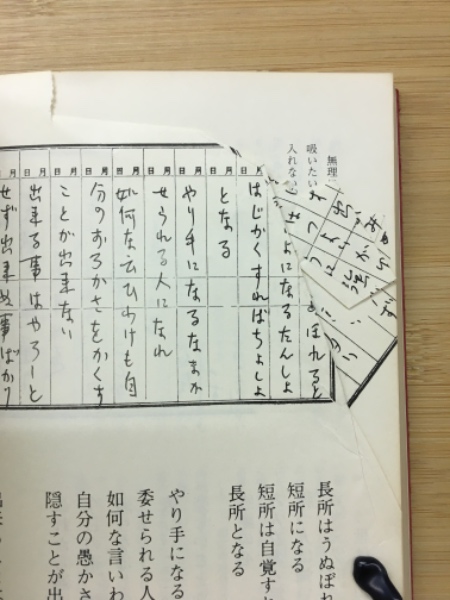 無理
吸いたい
入れない
ぼれると
よになるたんしよ
はじかくすればちよしよ
となる
やり手になるなまか
せられる人になれ
如何な云ひわけも自
分のおろかさをかくす
ことが出来ない
出来る事はやろーと
せず出来ぬ事ばかり
長所はうぬぼれ
短所になる
短所は自覚す
長所となる
やり手になる
委せられる人
如何な言いわ
自分の愚かさ
隠すことが出